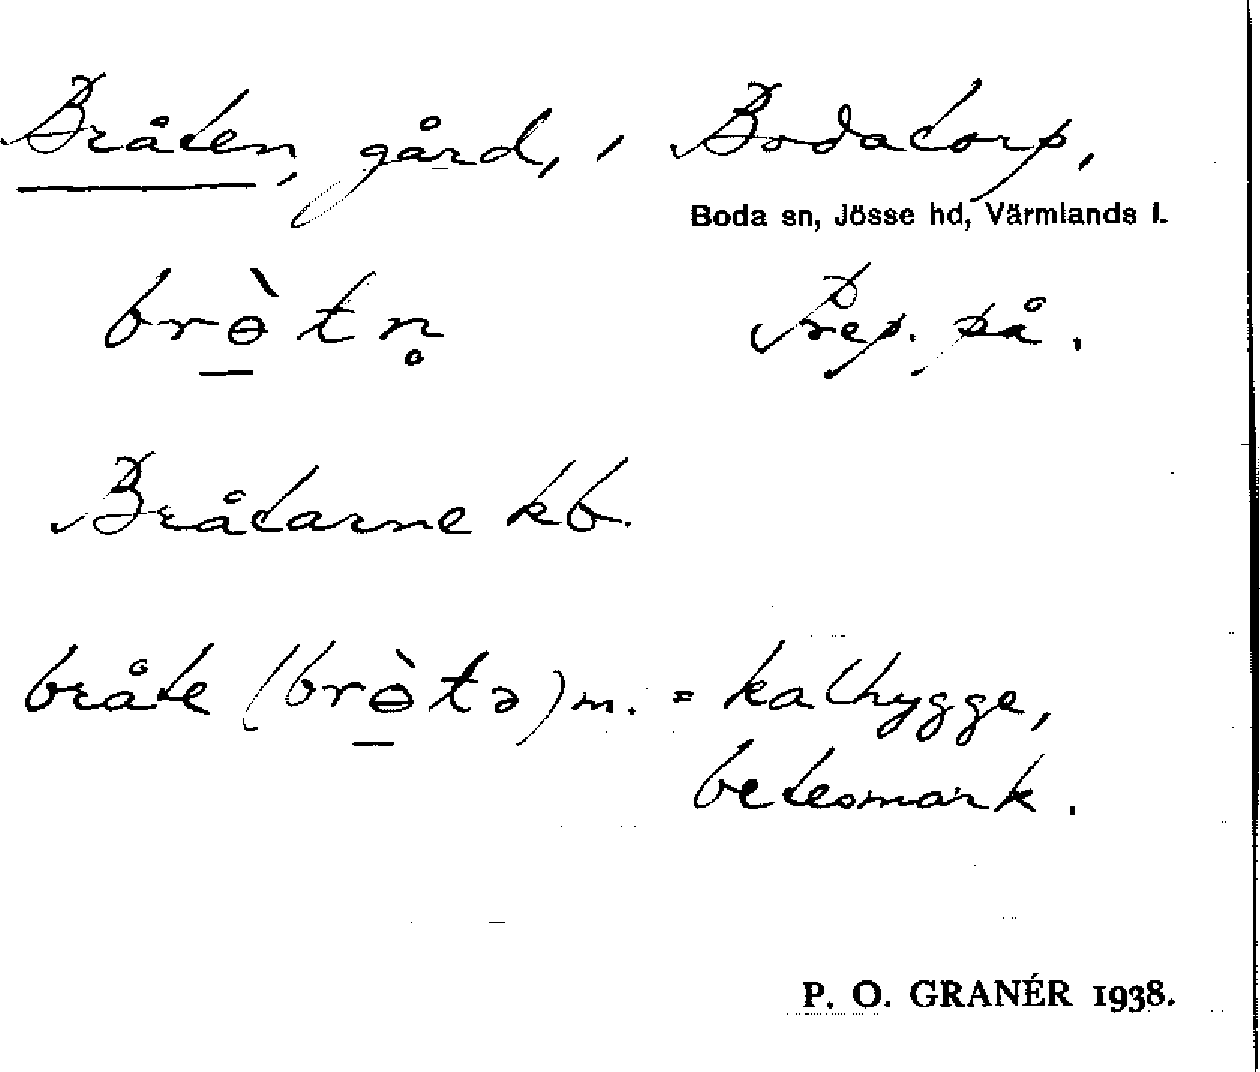 Bråten, gård, i Bodatorp,
Boda sn, Jösse hd, Värmlands l.
brɵ̠̀tn̥ Prep. på.
Bråtarne kb.
bråte (brɵ̠̀tə) m. = kalhygge,
betesmark.
P. O. GRANÉR 1938.